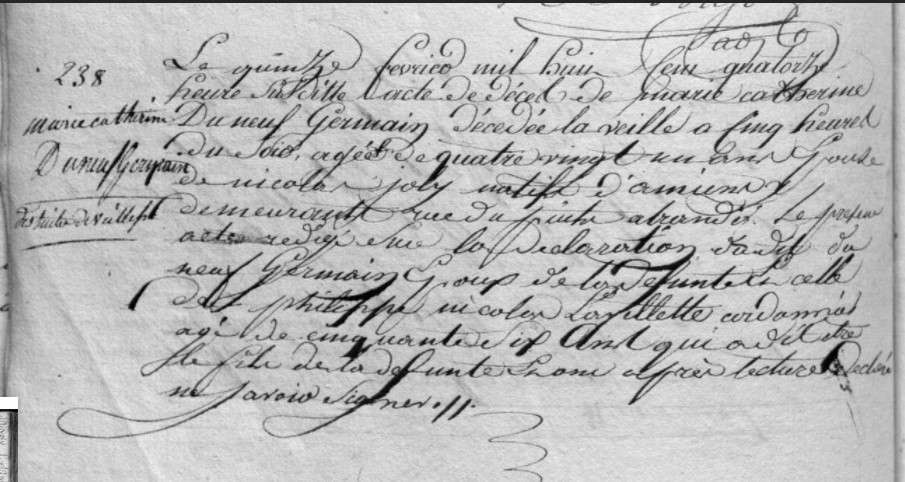 238
marie catherine
Duneuf Germain
Le quinze fevrier mil huit cent quatorze
heure Susditte acte de décet de marie catherine
Duneuf Germain décédée la veille a cinq heures
du Soir, agée de quatre vingt un ans Epouse
de nicolas joly natifs d'amiens
demeurants rue du puits abrandil. Le present
acte redigé Sur la Declaration dudit du
neuf Germain Epoux de la Defunte Et celle
de philippe nicolas Lavillette cordonnier
agé de cinquante Six Ans qui a dit être
le fils de la defunte Et ont après lecture Declaré
ne Savoir Signer .//.